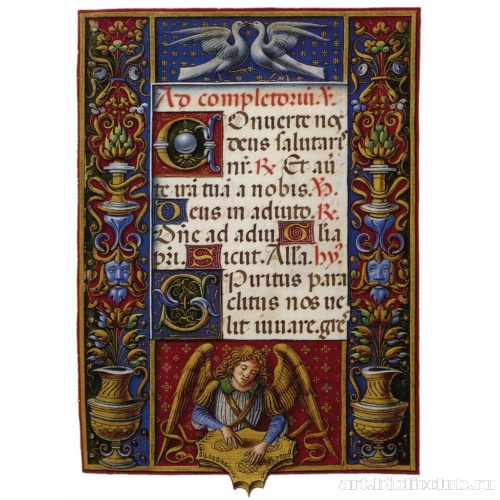 Ad completoriū. V.
Conuerte nos
deus salutare
nr̄. R. Et auer
te irā tuā a nobis. V.
Deus in adiuto. R.
Dn̄e ad adiu. Glia
pri. Sicut. Alla. hy9
Spiritus para
clitus nos ue
lit iuuare. gre
art.biblioclub.ru